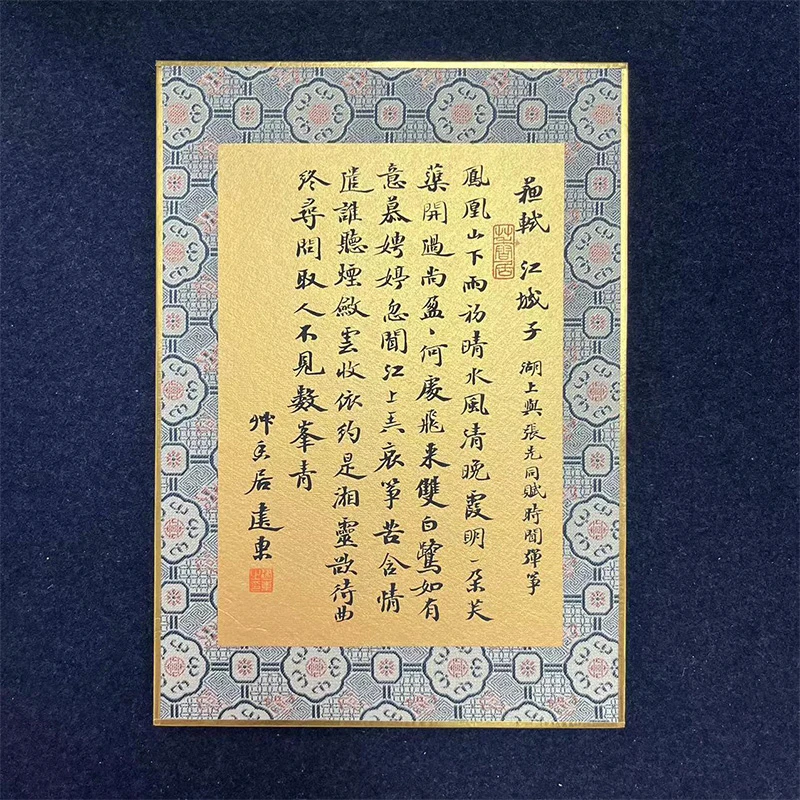 蘓軾 江城子 湖上與張先同賦時聞彈箏
鳳凰山下雨初晴水風清晚霞明一朵芙
蕖開過尚盈、何處飛來雙白鷺如有
意慕娉婷忽聞江上弄哀箏苦含情
遣誰聽煙斂雲收依約是湘靈欲待曲
終尋問取人不見數峯青
居遠東